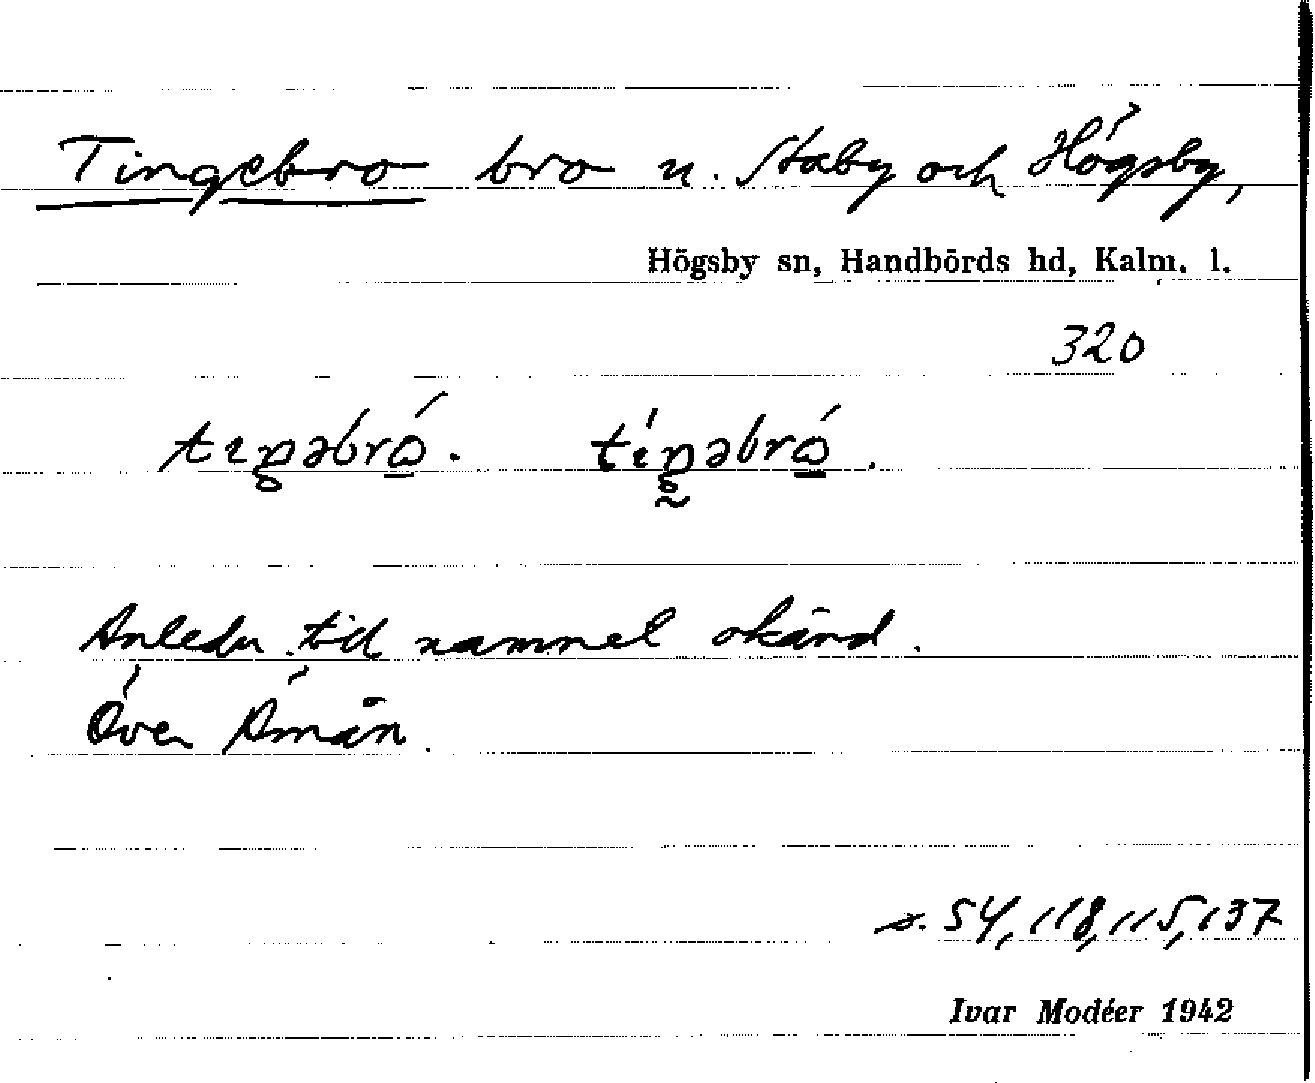 Tingebro bro n. Staby och Högsby,
Högsby sn, Handbörds hd, Kalm. l.
320
Anledn. till namnet okänd.
Över Åmån.
s. 54, 118, 115, 137
Ivar Modéer 1942